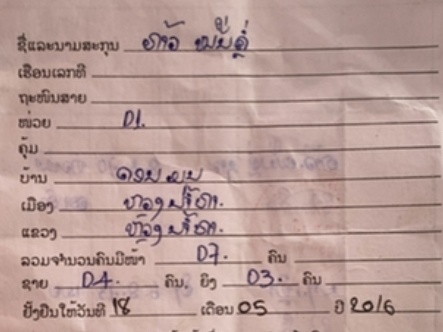 ຊື່ແລະນາມສະກຸນ ທ້າວ
ເຮືອນເລກທີ
ຖະໜົນສາຍ
ໜ່ວຍ 01.
ຄຸ້ມ
ບ້ານ
ເມືອງ ຫຼວງນ້ຳທາ.
ແຂວງ ຫຼວງນ້ຳທາ.
ລວມຈຳນວນຄົນມີໜ້າ 07. ຄົນ
ຊາຍ 04. ຄົນ, ຍິງ 03. ຄົນ
ຢັ້ງຢືນໃຫ້ວັນທີ 18 ເດືອນ 05 ປີ 2016